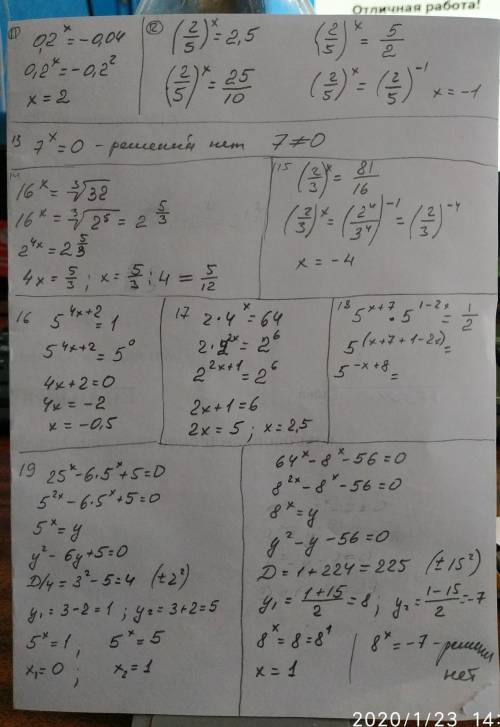 Отличная работа!
11
0,2^x = -0,04
0,2^x = -0,2²
x = 2
12
(2/5)^x = 2,5
(2/5)^x = 25/10
(2/5)^x = 5/2
(2/5)^x = (2/5)^-1 x = -1
13 7^x = 0 - решений нет 7 ≠ 0
14
16^x = ∛32
16^x = ∛2⁵ = 2^(5/3)
2^4x = 2^(5/3)
4x = 5/3 ; x = 5/3 : 4 = 5/12
115 (2/3)^x = 81/16
(2/3)^x = (2⁴/3⁴)^-1 = (2/3)^-4
x = -4
16 5^(4x+2) = 1
5^(4x+2) = 5⁰
4x+2=0
4x = -2
x = -0,5
17 2·4^x = 64
2·2^2x = 2⁶
2^(2x+1) = 2⁶
2x+1 = 6
2x = 5 ; x = 2,5
18 5^(x+7) · 5^(1-2x) = 1/2
5^(x+7+1-2x) =
5^(-x+8) =
19 25^x - 6·5^x + 5 = 0
5^2x - 6·5^x + 5 = 0
5^x = y
y² - 6y + 5 = 0
D/4 = 3² - 5 = 4 (±2²)
y₁ = 3-2 = 1 ; y₂ = 3+2 = 5
5^x = 1, 5^x = 5
x₁ = 0 ; x₂ = 1
64^x - 8^x - 56 = 0
8^2x - 8^x - 56 = 0
8^x = y
y² - y - 56 = 0
D = 1 + 224 = 225 (±15²)
y₁ = (1+15)/2 = 8 ; y₂ = (1-15)/2 = -7
8^x = 8 = 8¹
x = 1
8^x = -7 - решений
нет
2020/1/23 14